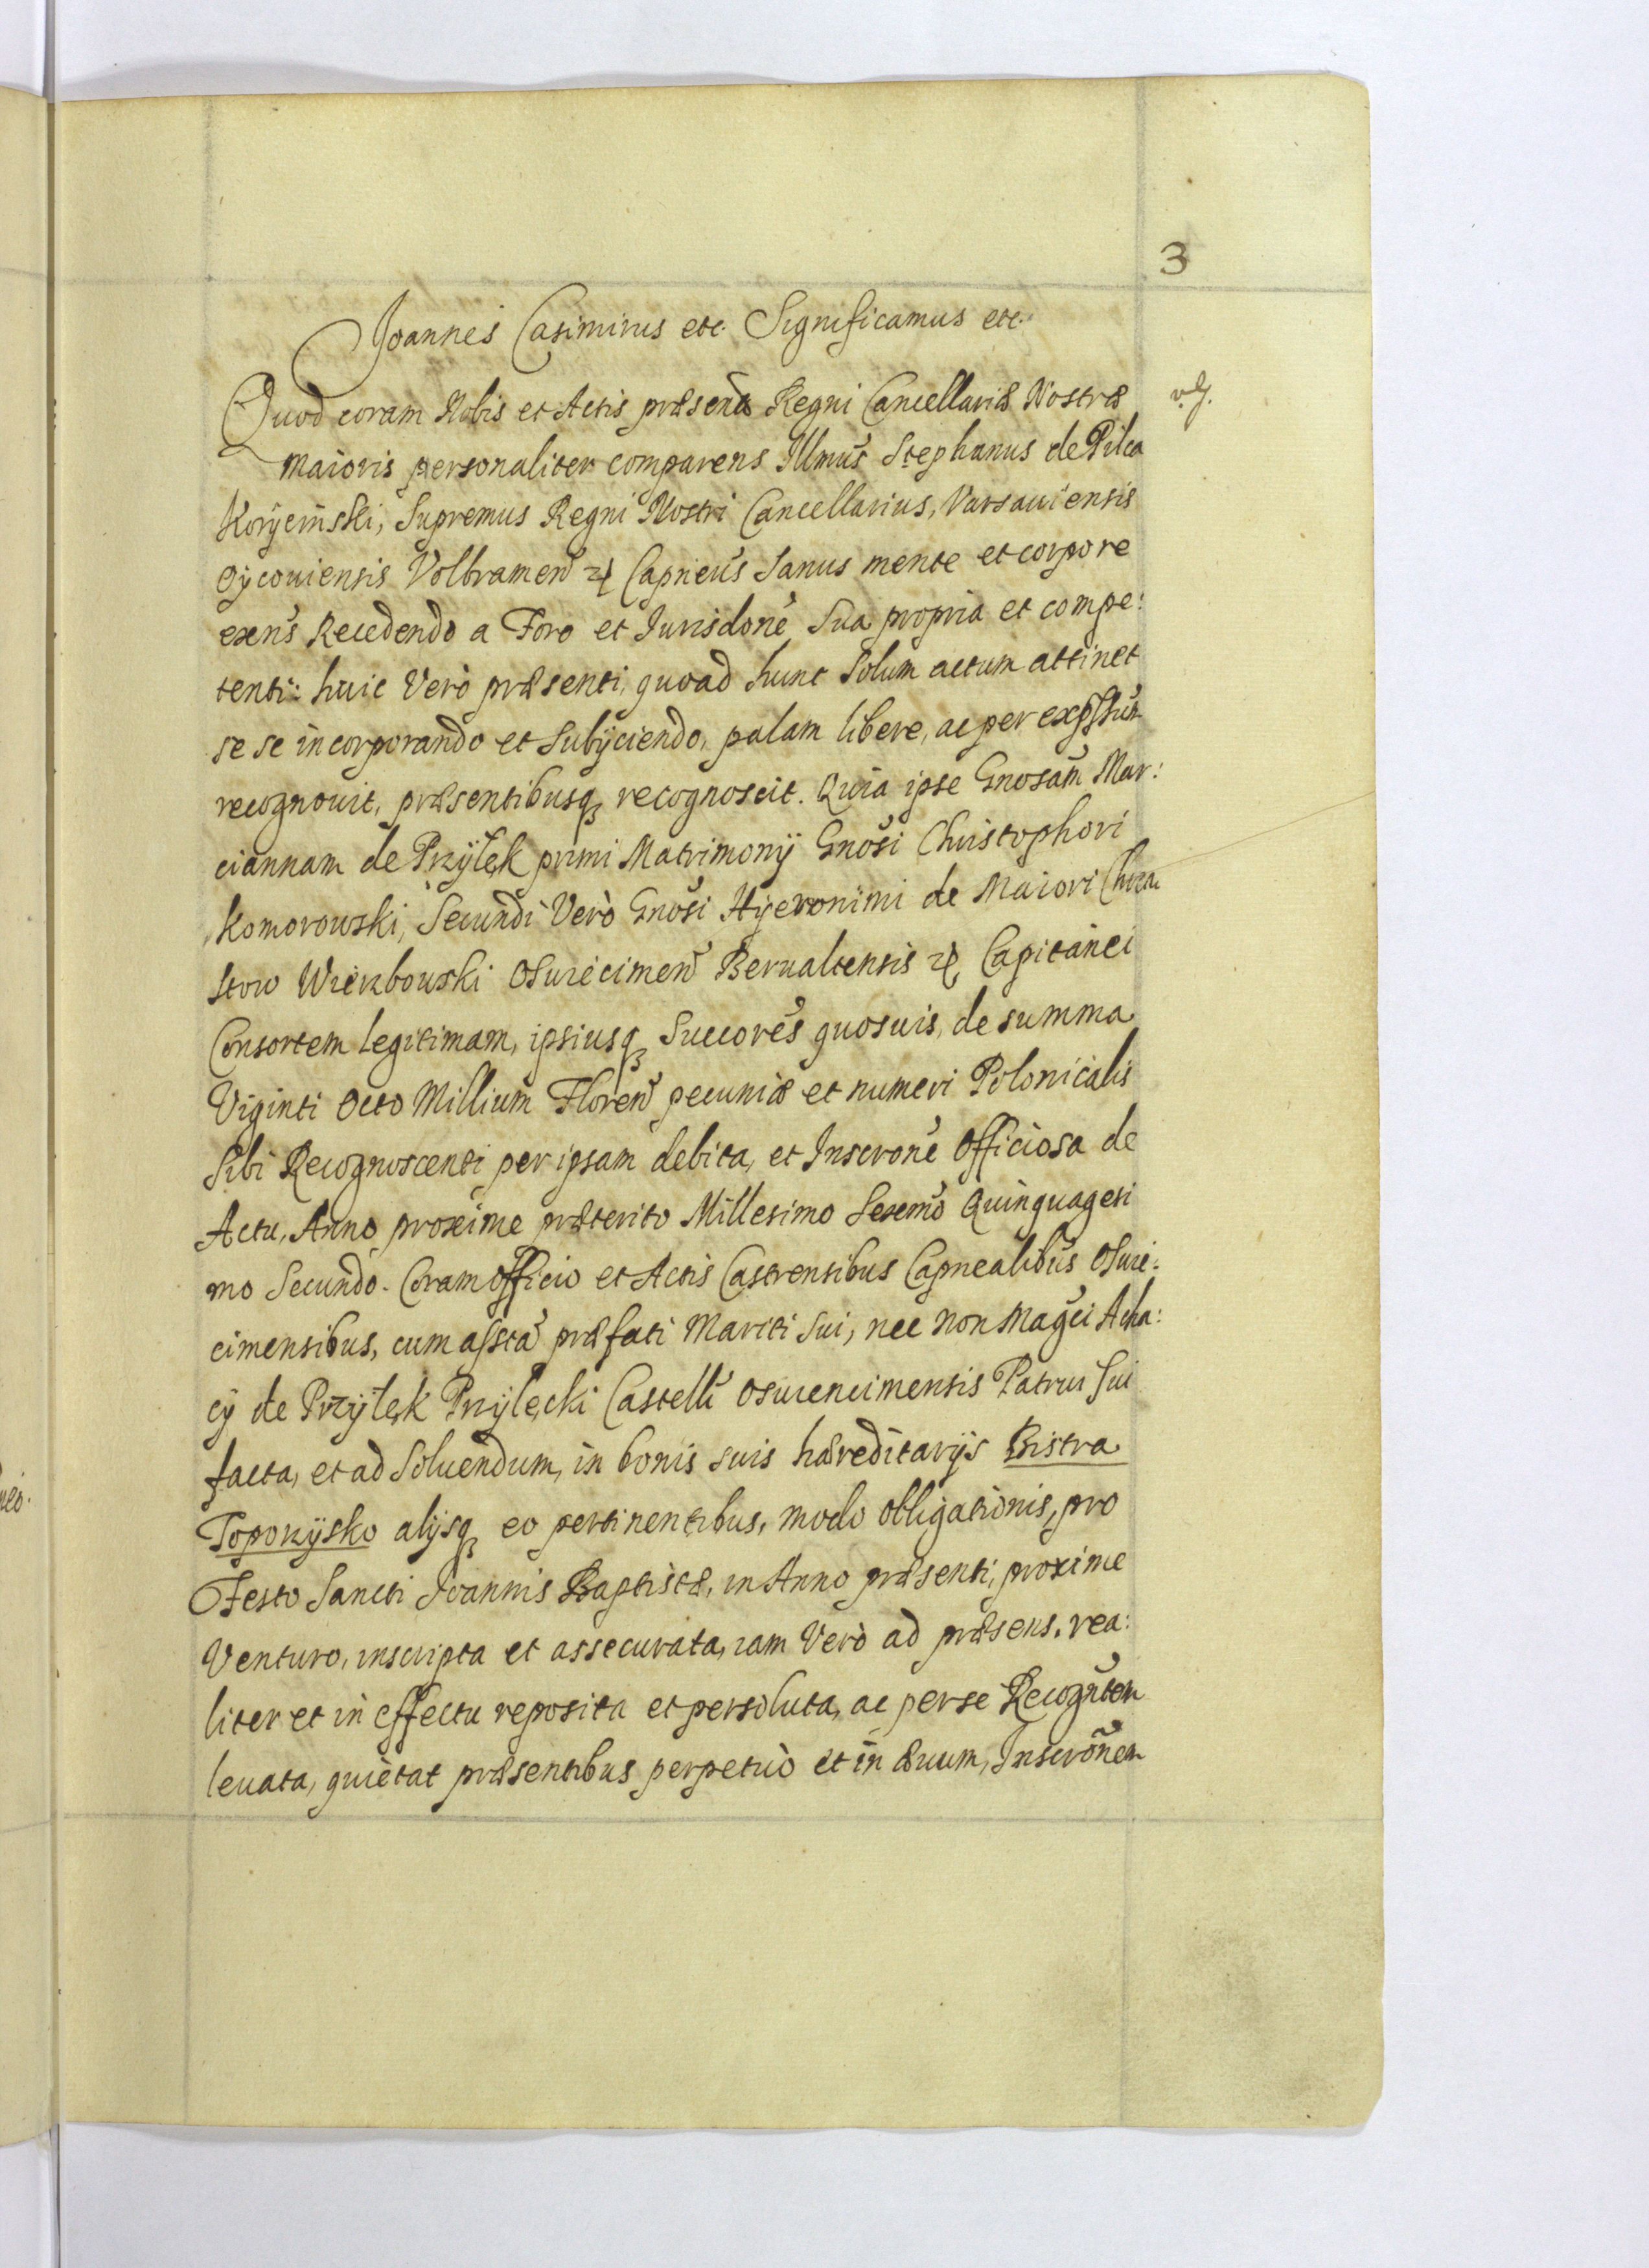 3
Joannes Casimirus etc. Significamus etc.
Quod coram Nobis et Actis præsentibus Regni Cancellariæ Nostræ
v.g.
maioris personaliter comparens Illmus Stephanus de Pilca
Koryciński, Supremus Regni Nostri Cancellarius, Varsaviensis
Oycoviensis Volbramen̄ etc Capneus Sanus mente et corpore
exens Recedendo a Foro et Jurisdone Sua propria et compe:
tenti: huic Verò præsenti, quoad hunc Solum actum attinet
se se incorporando et Subÿciendo, palam libere, ac per expssum
recognovit, præsentibusq; recognoscit. Quia ipse Gnosam Mar:
ciannam de Przÿłęk primi Matrimonÿ Gnosi Christophori
Komorowski, Secundi Verò Gnosi Hÿeronimi de Maiori Chrza
stow Wierzbowski Osuiecimen̄ Berualtensis etc Capitanei
Consortem legitimam, ipsiusq; Succores quosuis, de summa
Viginti Octo Millium Floren̄ pecuniæ et numeri Polonicalis
Sibi Recognoscenti per ipsam debita, et Inscrone Officiosa de
Actu, Anno proxime præterito Millesimo Sexcmo Quinquagesi
mo Secundo. Coram officio et Actis Castrensibus Capnealibus Osuie:
cimensibus, cum assta præfati Mariti Sui, nec non Magci Acha:
cÿ de Przÿłęk Przyłęcki Castelli Osuiencimensis Patrui Sui
facta, et ad Soluendum, in bonis suis hæreditarÿs Bistra
Toporzÿsko alÿsq; eo pertinentibus, modo obligationis, pro
Festo Sancti Joannis Baptistæ, in Anno præsenti, proxime
Venturo, inscripta et assecurata, iam Verò ad præsens, rea:
liter et in effectu reposita et persoluta, ac per se Recogntem
levata, quietat præsentibus perpetuò et in æuum, Inscronem